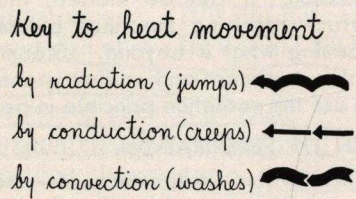 Key to heat movement
by radiation (jumps)
by conduction (creeps)
by convection (washes)